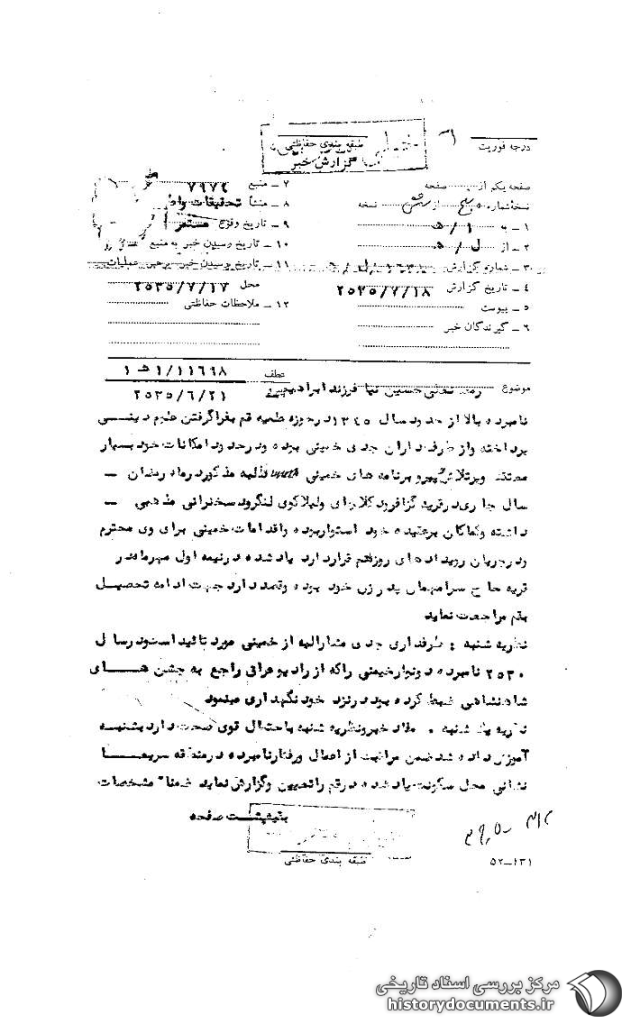 درجه فوریت
طبقه بندی حفاظتی
خیلی
گزارش خبر
صفحه یکم از صفحه
نسخه شماره پنج از شش نسخه
۱ – به ۱ / ﻫ
۲ – از ل / ﻫ
۳ – شماره گزارش
۴ – تاریخ گزارش ۲۵۳۵/۷/۱۸
۵ – پیوست
۶ – گیرندگان خبر
۷ – منبع ۷۹۷۴
۸ – منشأ تحقیقات
۹ – تاریخ وقوع مستمر
۱۰ – تاریخ رسیدن خبر به منبع
۱۱ – تاریخ رسیدن خبر برهبر عملیات
محل ۲۵۳۵/۷/۱۷
۱۲ – ملاحظات حفاظتی
عطف ۱۱۶۹۸/۱ ﻫ ۱
۲۵۳۵/۶/۲۱
موضوع حسین نیا فرزند ابراهیم
نامبرده بالا از حدود سال ۱۳۴۵ در حوزه علمیه قم بفراگرفتن علوم دینی
پرداخته و از طرفداران جدی خمینی بوده و در حدود امکانات خود بسیار
معتقد و پرتلاش پیرو برنامه های خمینی مذکور در ماه رمضان –
سال جاری در قریه و لیلاکوی لنگرود سخنرانی مذهبی –
داشته و کماکان بر عقیده خود استوار بوده و اقدامات خمینی برای وی محترم
و در جریان رویدادهای روز قم قرار دارد یاد شده در نیمه اول مهرماه در
قریه حاج سرا میهمان پدر زن خود بوده و قصد دارد جهت ادامه تحصیل
بقم مراجعت نماید
نظریه شنبه : طرفداری جدی مشارالیه از خمینی مورد تائید است و در سال
۲۵۳۰ نامبرده دو نوار خمینی را که از رادیو عراق راجع به جشن های
شاهنشاهی ضبط کرده بود در نزد خود نگهداری مینمود
نظریه یکشنبه . مفاد خبر و نظریه شنبه باحتمال قوی صحت دارد بشنبه
آموزش داده شد ضمن مراقبت از اعمال و رفتار نامبرده در منطقه سریعا
نشانی محل سکونت یاد شده در قم را تعیین و گزارش نماید ضمنا" مشخصات
بقیه پشت صفحه
طبقه بندی حفاظتی
۵۲–۱۳۱
مرکز بررسی اسناد تاریخی
historydocuments.ir